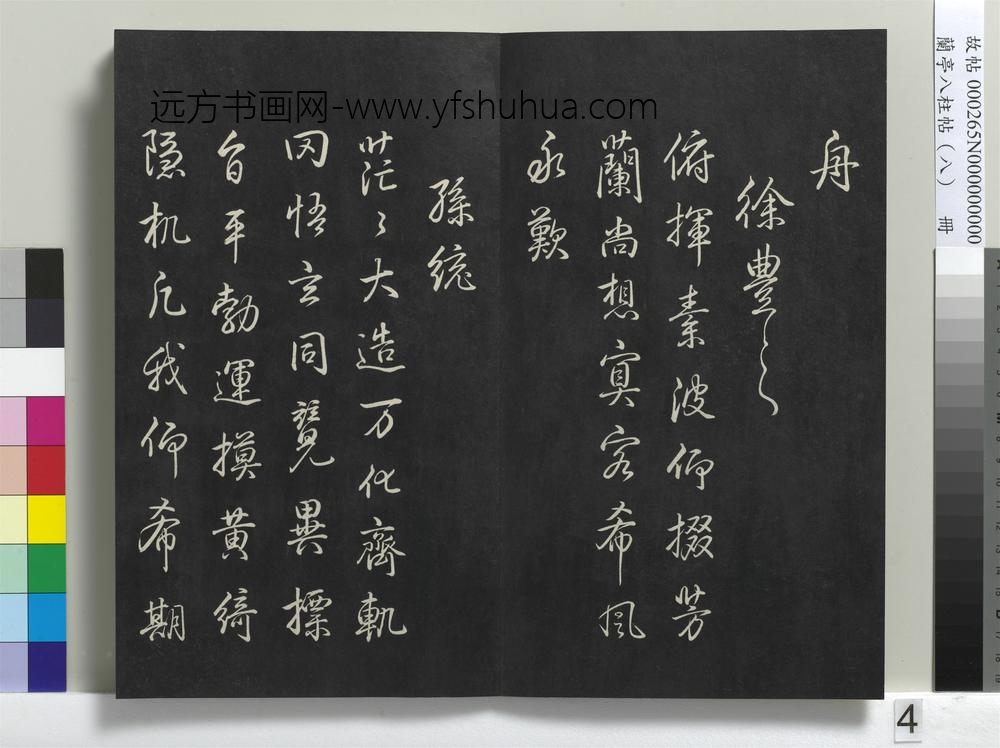 舟
徐豊之
俯揮素波仰掇芳
蘭尚想冥客希風
永歎
孫統
茫〻大造万化齊軌
罔悟玄同競異摽
旨平勃運摸黄綺
隐机凡我仰希期
远方书画网-www.yfshuhua.com
故帖 000265N000000000
蘭亭八柱帖(八) 冊
4